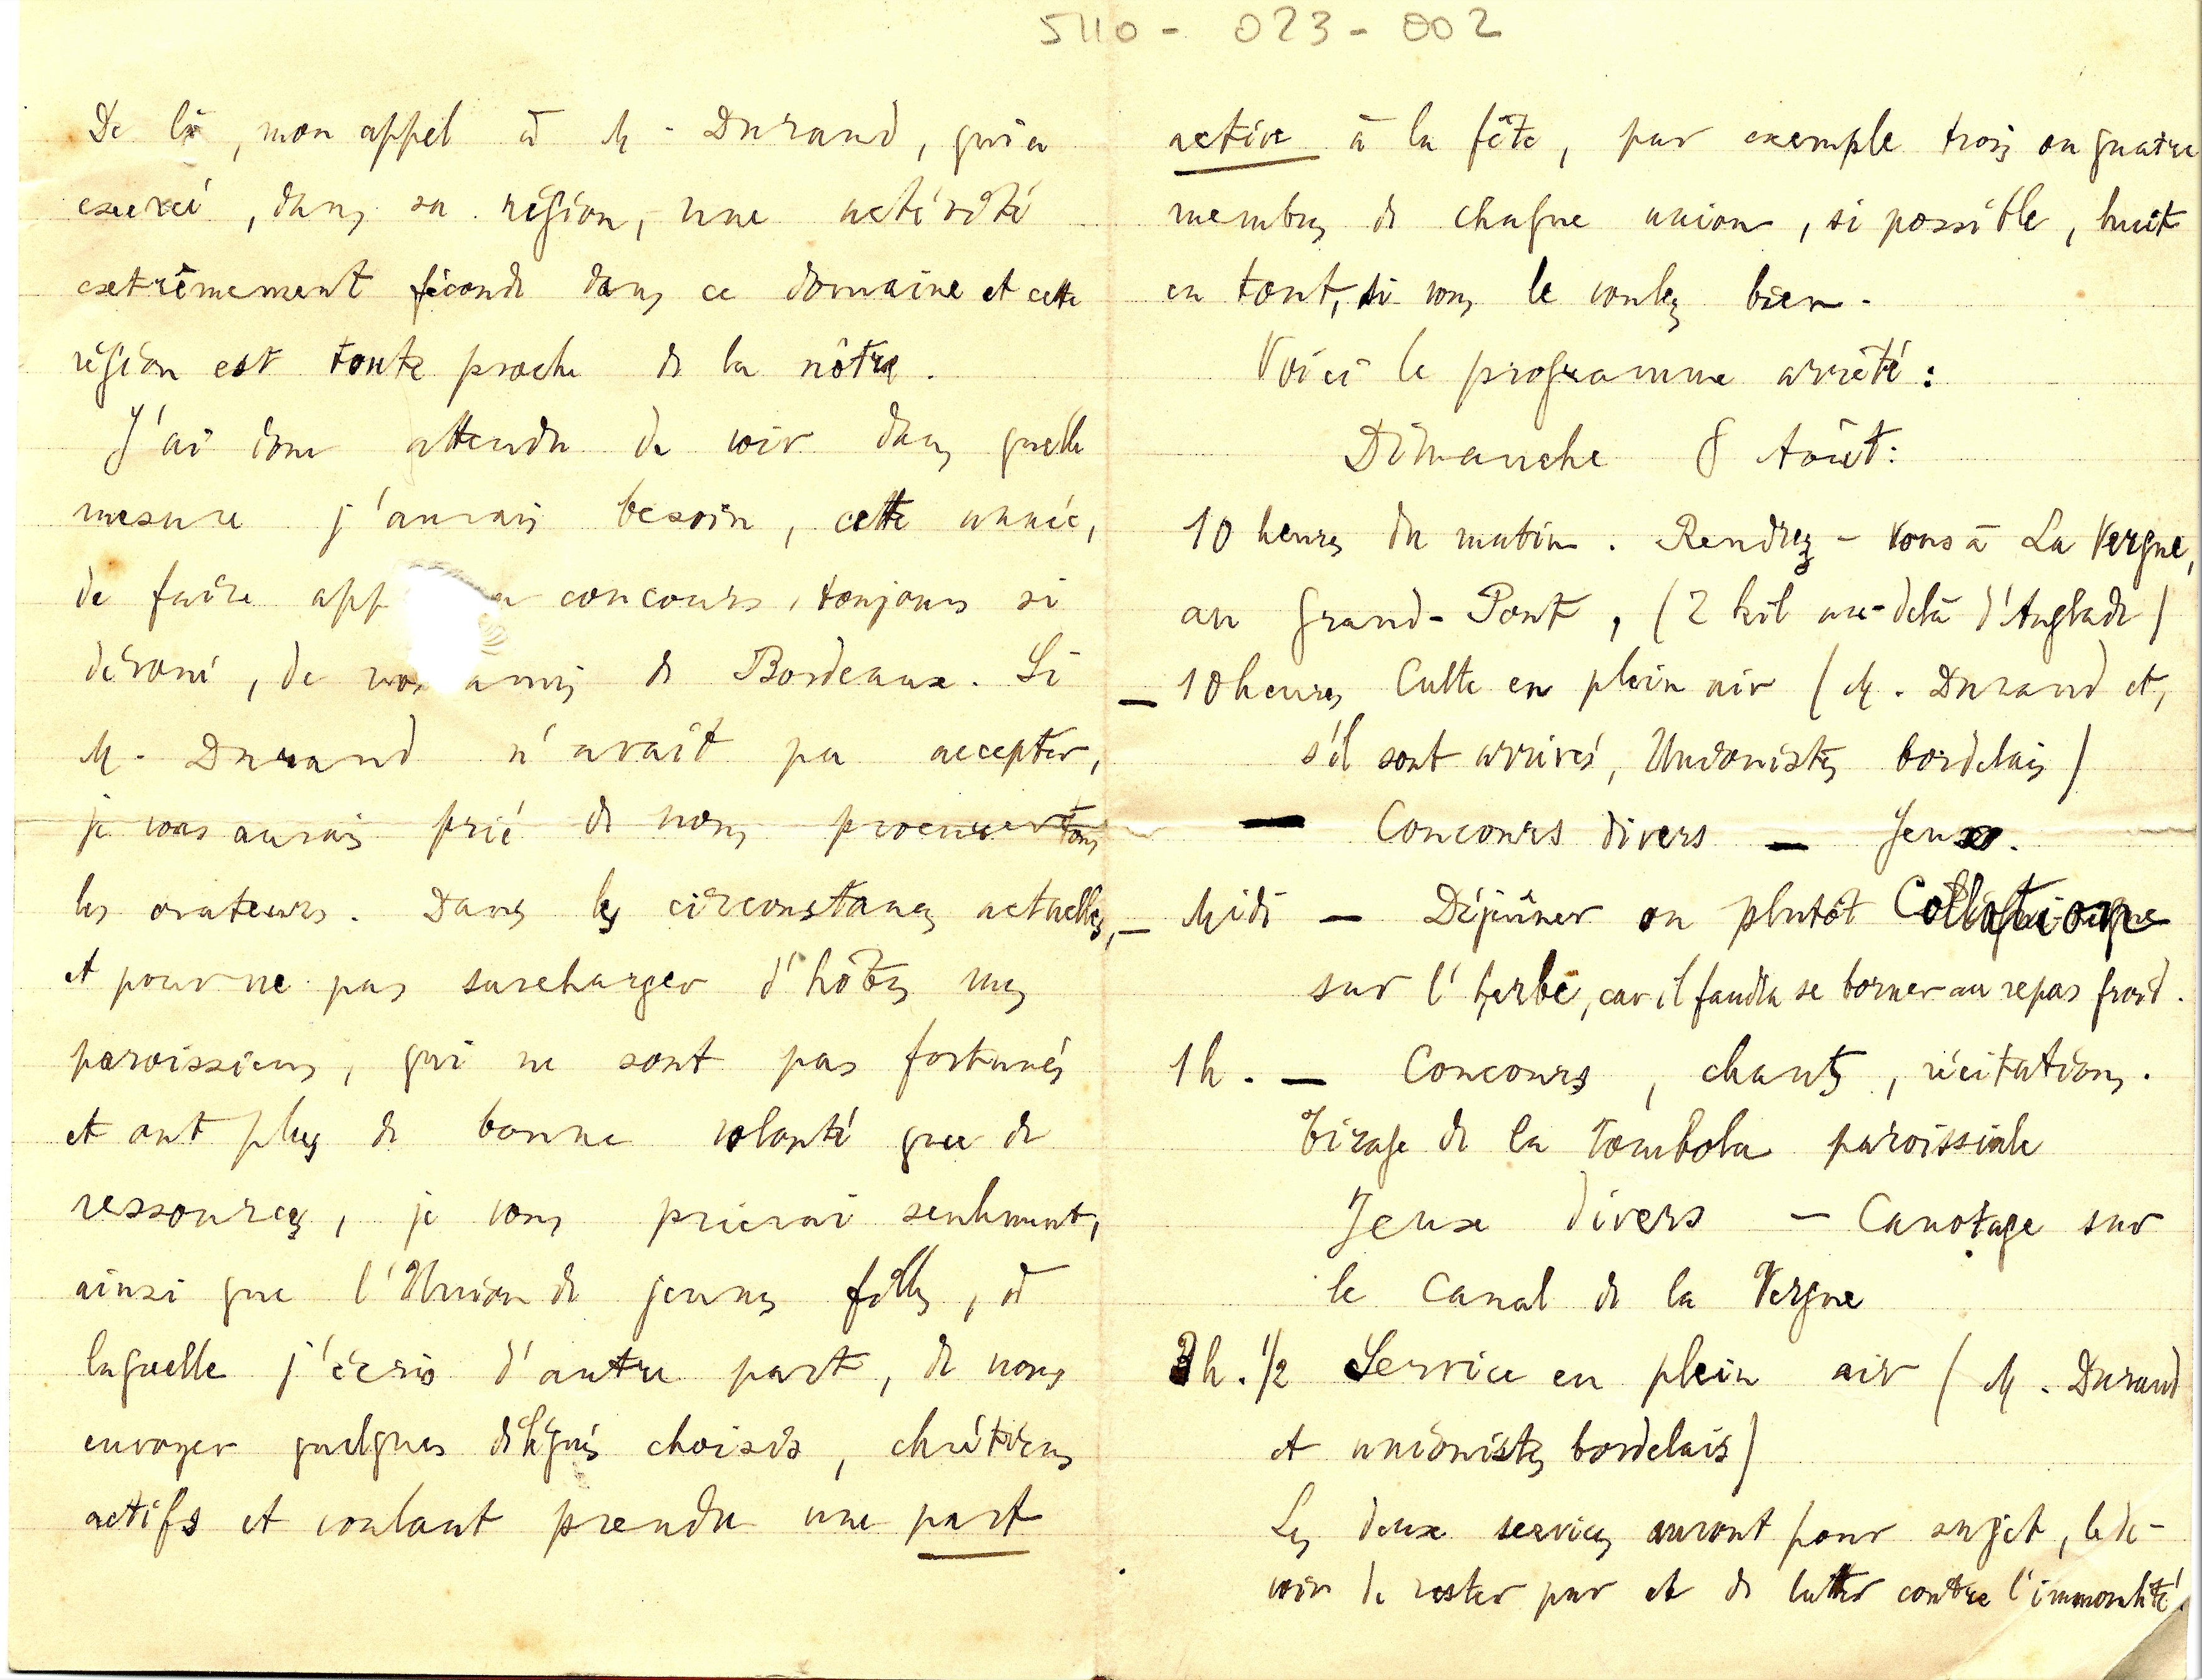 5110 - 023 - 002
De là, mon appel à M. Durand, qui a
exercé, dans sa région, une activité
extrêmement féconde dans ce domaine et cette
région est toute proche de la nôtre.
J'ai donc attendu de voir dans quelle
mesure j'aurais besoin, cette année,
de faire app concours, toujours si
dévoué, de vos amis de Bordeaux. Si
M. Durand n'avait pu accepter,
je vous aurais prié de nous procurer tous
les orateurs. Dans les circonstances actuelles,
et pour ne pas surcharger d'hôtes mes
paroissiens, qui ne sont pas fortunés
et ont plus de bonne volonté que de
ressources, je vous prierai seulement,
ainsi que l'Union de jeunes filles, à
laquelle j'écris d'autre part, de nous
envoyer quelques délégués choisis, chrétiens
actifs et voulant prendre une part
active à la fête, par exemple trois ou quatre
membres de chaque union, si possible, huit
en tout, si vous le voulez bien.
Voici le programme arrêté :
Dimanche 8 Août :
10 heures du matin. Rendez-vous à La Vergne,
au Grand-Pont, (2 kil au-delà d'Anglade)
— 10 heures Culte en plein air (M. Durand et,
s'il sont arrivés, Unionistes bordelais)
— Concours divers — Jeux.
— Midi — Déjeûner ou plutôt Collation
sur l'herbe, car il faudra se borner au repas froid.
1h. — Concours, chants, récitations.
Tirage de la tombola paroissiale
Jeux divers — Canotage sur
le Canal de la Vergne
3h. 1/2 Service en plein air (M. Durand
et unionistes bordelais)
Les deux services auront pour sujet, le de-
voir de rester pur et de lutter contre l'immoralité.